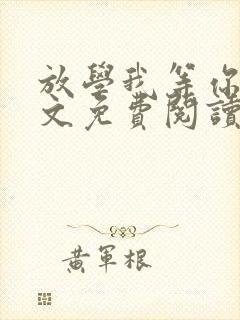 放學我等你
文免費閱讀
黃軍根